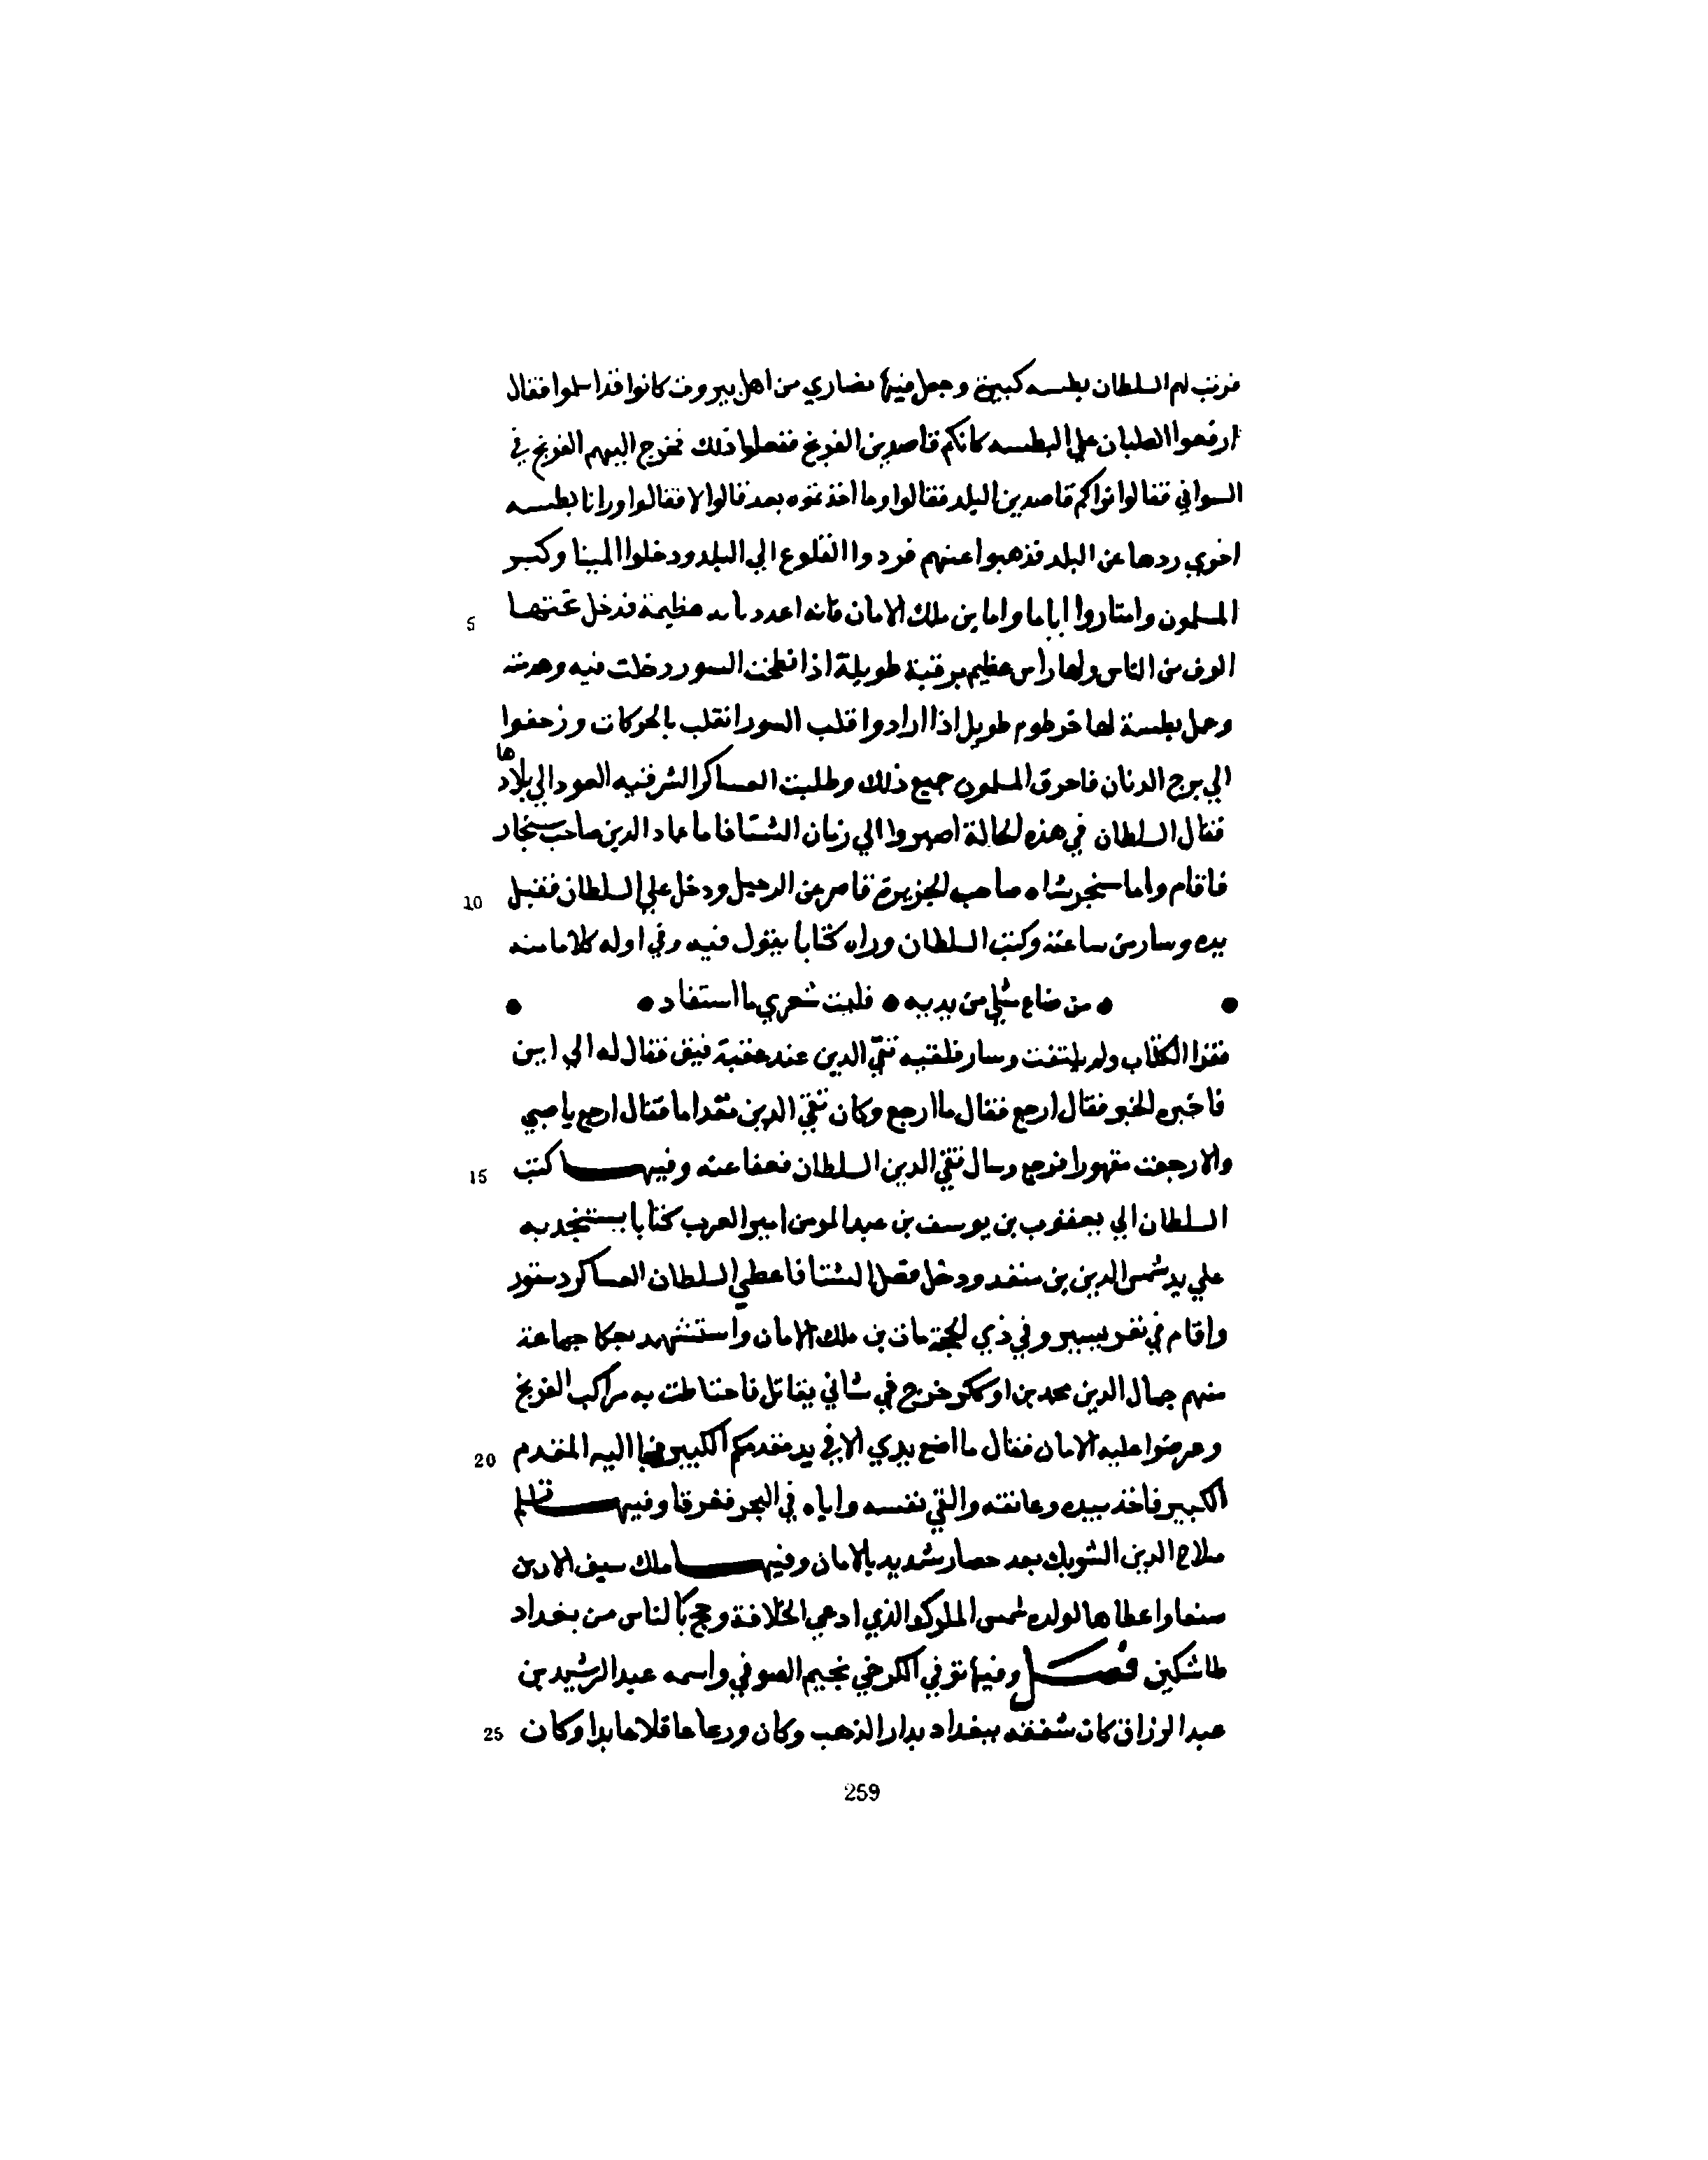 فرتب لهم السلطان بطسه كبيرة وجعل فيها نصاري من اهل بيروت كانوا قد اسلموا فقال
ارفعوا الصلبان علي البطسه كانكم قاصدين الفرنج ففعلوا ذلك فخرج اليهم الفرنج في
السواني فقالوا نراكم قاصدين البلد فقالوا وما اخذتموه بعد قالوا لا فقالوا ورانا بطسه
اخري ردها عن البلد فذهبوا عنهم فردوا القلوع الي البلد ودخلوا المينا وكبر
المسلمون وامتاروا اياما واما بن ملك الامان فانه اعد دبابه عظيمة فدخل تحتها 5
الوف من الناس ولها راس عظيم برقبة طويلة اذا نطحت السور دخلت فيه وهدمته
وعمل بطسة لها خرطوم طويل اذا ارادوا قلب السور انقلب بالحركات وزحفوا
الي برج الدبان فاحرق المسلمون جميع ذلك وطلبت العساكر الشرقيه العود الي بلادها
فقال السلطان في هذه الحالة اصبروا الي زمان الشتا فاما عماد الدين صاحب سنجار
فاقام واما سنجر شاه صاحب الجزيرة قاصر عن الرحيل ودخل علي السلطان فقبل 10
يده وسار من ساعته وكتب السلطان وراه كتابا يقول فيه وفي اوله كلاما منه
• • من ضاع مثلي من يديه • فليت شعري ما استفاد • •
فقرا الكتاب ولم يلتفت وسار فلقيه تقي الدين عند عقبة فيق فقال له الي اين
فاخبره الخبر فقال ارجع فقال ما ارجع وكان تقي الدين مقداما فقال ارجع يا صبي
والا رجعت مقهورا فرجع وسال تقي الدين السلطان فعفا عنه وفيها كتب 15
السلطان الي يعقوب بن يوسف بن عبد المومن امير العرب كتابا يستنجد به
علي يد شمس الدين بن منقد ودخل فصل الشتا فاعطي السلطان العساكر دستور
واقام في نفر يسير وفي ذي الحجة مات بن ملك الامان واستشهد بعكا جماعة
منهم جمال الدين محمد بن اوككز خرج في شاني يقاتل فاحتاطت به مراكب الفرنج
وعرضوا عليه الامان فقال ما اضع يدي الا في يد مقدمكم الكبير فجا اليه المقدم 20
الكبير فاخذ بيده وعانقه والقي نفسه واياه في البحر فغرقا وفيها تسلم
صلاح الدين الشوبك بعد حصار شديد بالامان وفيها ملك سيف الادين
صنعا واعطاها لولده شمس الملوك الذي ادعي الخلافة وحج بالناس من بغداد
طاشكين فصل وفيها توفي الكرخي نجيم الصوفي واسمه عبد الرشيد بن
عبد الرزاق كان شفقه ببغداد بدار الذهب وكان ورعا عاقلا عابدا وكان 25
259